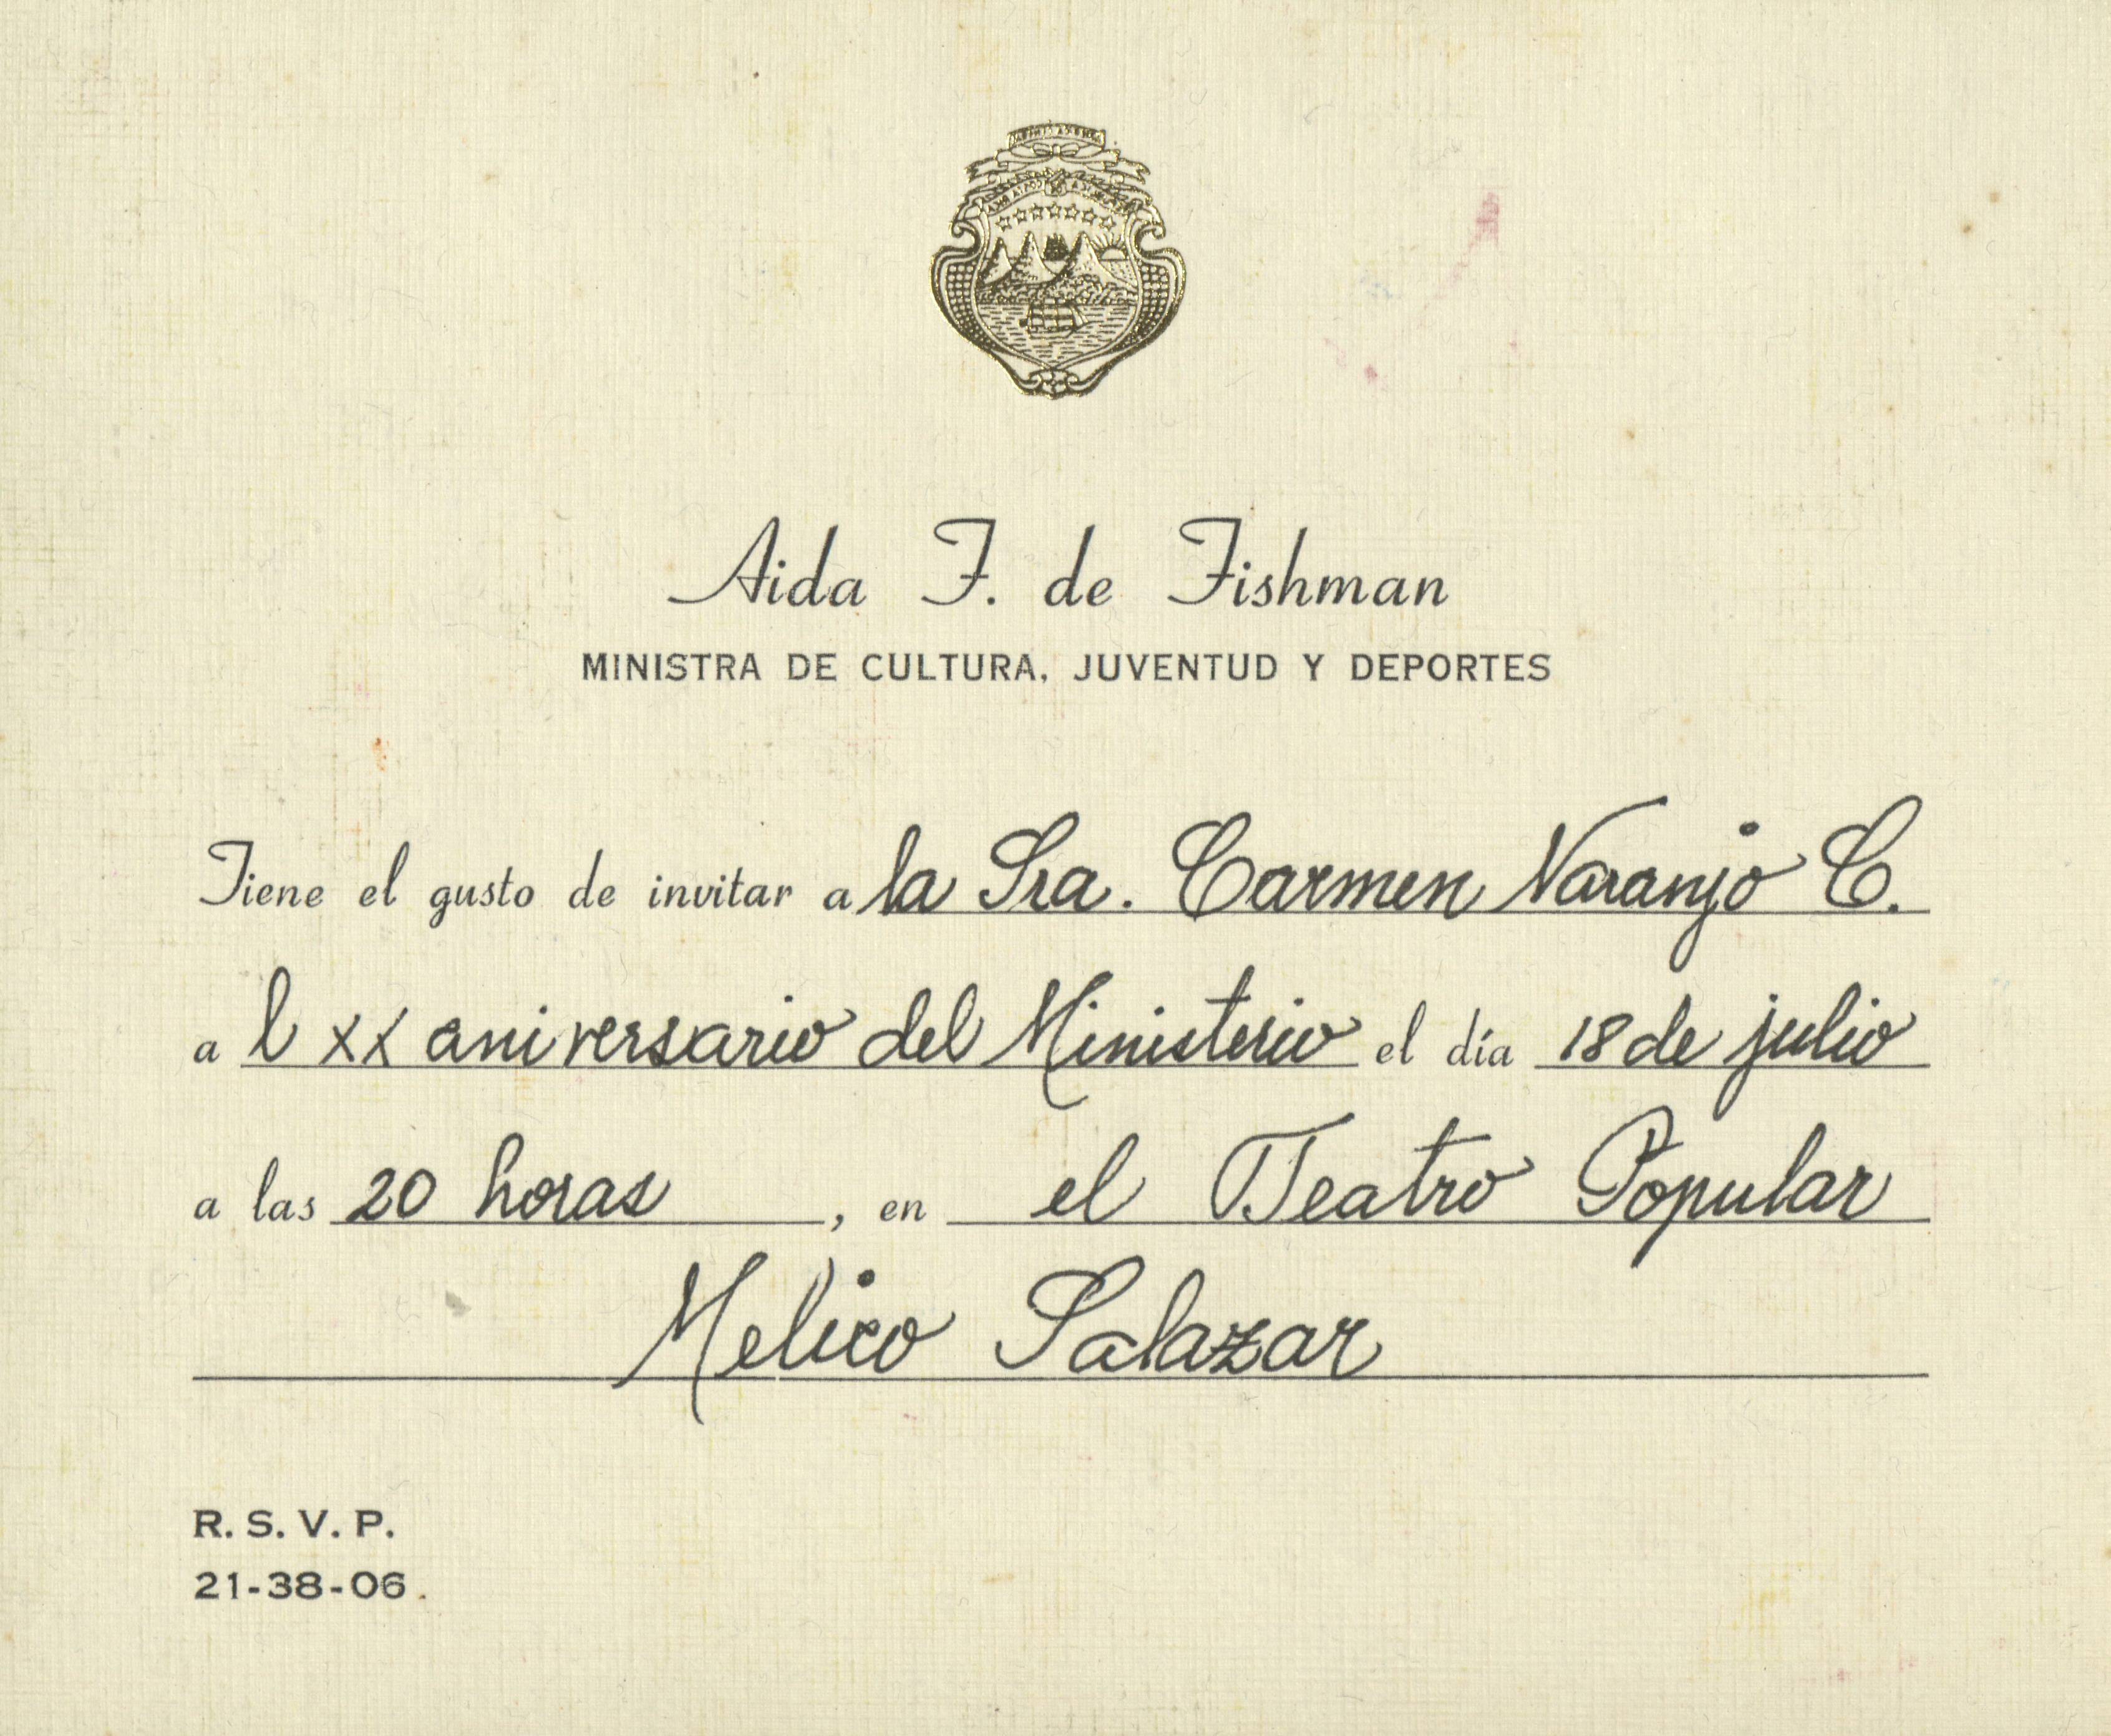 Aida F. de Fishman
MINISTRA DE CULTURA, JUVENTUD Y DEPORTES
Tiene el gusto de invitar a la Sra. Carmen Naranjo C.
a l XX aniversario del Ministerio el día 18 de julio
a las 20 horas , en el Teatro Popular
Melico Salazar
R. S. V. P.
21-38-06.